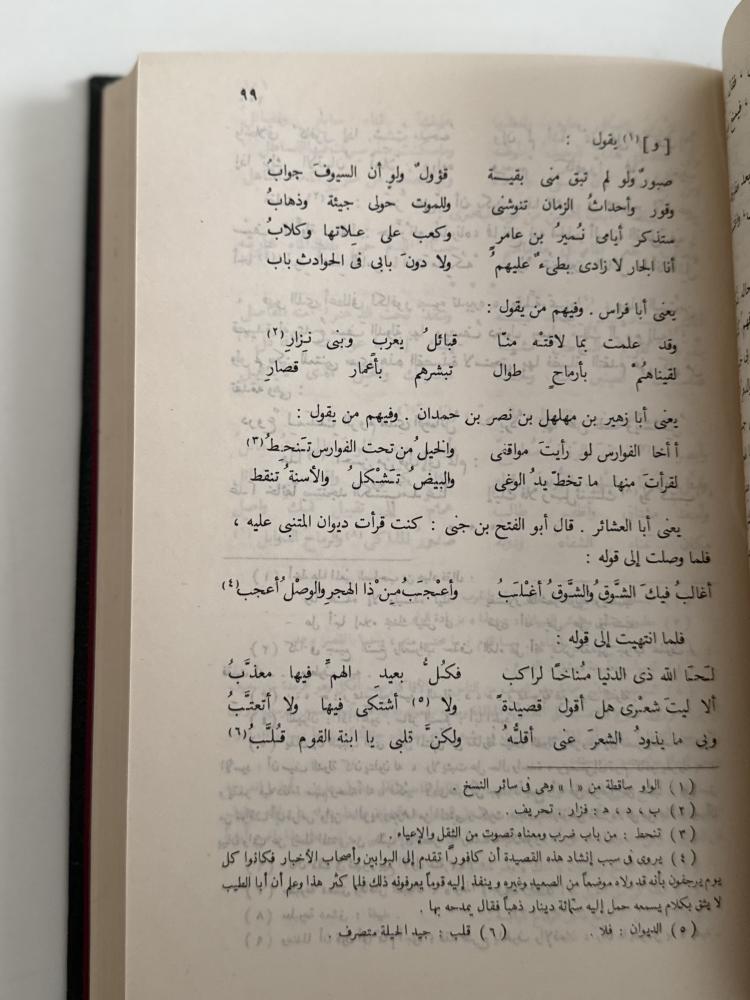 ٩٩
[ و ] (١) يقول :
صبورٌ ولو لم تبق منى بقيــة قؤولٌ ولو أن السيوفَ جوابُ
وقور وأحداثُ الزمان تنوشنى وللموت حولى جيئة وذهابُ
ستذكر أيامى نُميرُ بن عامرٍ وكعب على علاتها وكلابُ
أنا الجار لا زادى بطىءٌ عليهمُ ولا دونَ بابى فى الحوادث باب
يعنى أبا فراس . وفيهم من يقول :
وقد علمت بما لاقتْه منّا قبائلُ يعربٍ وبنى نِزارِ (٢)
لقيناهُمُ بأرماحٍ طوال تبشرهم بأعمار قصارِ
يعنى أبا زهير بن مهلهل بن نصر بن حمدان . وفيهم من يقول :
أ أخا الفوارس لو رأيتَ مواقفى والخيلُ من تحت الفوارس تَنحِطُ (٣)
لقرأتَ منها ما تخطّ يدُ الوغى والبيضُ تَشْكلُ والأسنةُ تنقط
يعنى أبا العشائر . قال أبو الفتح بن جنى : كنت قرأت ديوان المتنبى عليه ،
فلما وصلت إلى قوله :
أغالبُ فيكَ الشَّوقَ والشَّوقُ أغْلَبُ وأعْجَبُ مِن ذا الهجرِ والوصْلُ أعجب (٤)
فلما انتهيت إلى قوله :
لَحَا الله ذى الدنيا مُناخًا لراكب فكُلُّ بعيدِ الهمِّ فيها معذَّبُ
ألا ليتَ شعْرى هل أقول قصيدةً ولا (٥) أشتكى فيها ولا أتعتَّبُ
وبى ما يذودُ الشعرَ عنى أقلُّهُ ولكنَّ قلبى يا ابنة القوم قُلَّبُ (٦)
(١) الواو ساقطة من « ا » وهى فى سائر النسخ .
(٢) ب ، د ، ه : فزار . تحريف .
(٣) تنحط : من باب ضرب ومعناه تصوت من الثقل والإعياء .
(٤) يروى فى سبب إنشاد هذه القصيدة أن كافورًا تقدم إلى البوابين وأصحاب الأخبار فكانوا كل
يوم يرجفون بأنه قد ولاه موضعاً من الصعيد وغيره وينفذ إليه قوماً يعرفونه ذلك فلما كثر هذا وعلم أن أبا الطيب
لا يثق بكلام يسمعه حمل إليه ستمائة دينار ذهباً فقال يمدحه بها .
(٥) الديوان : فلا . (٦) قلب : جيد الحيلة متصرف .